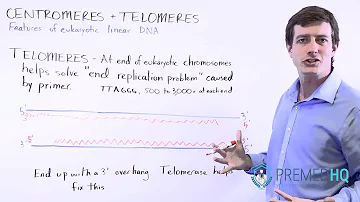 CENTROMERES + TELOMERES
Features of eukaryotic linear DNA
TELOMERES - At end of eukaryotic chromosomes
helps solve "end replication problem" caused
by primer. TTAGGG, 500 to 3,000x at each end
5'
3'
3'
5'
End up with a 3' overhang Telomerase helps
fix this
PREMEDHQ